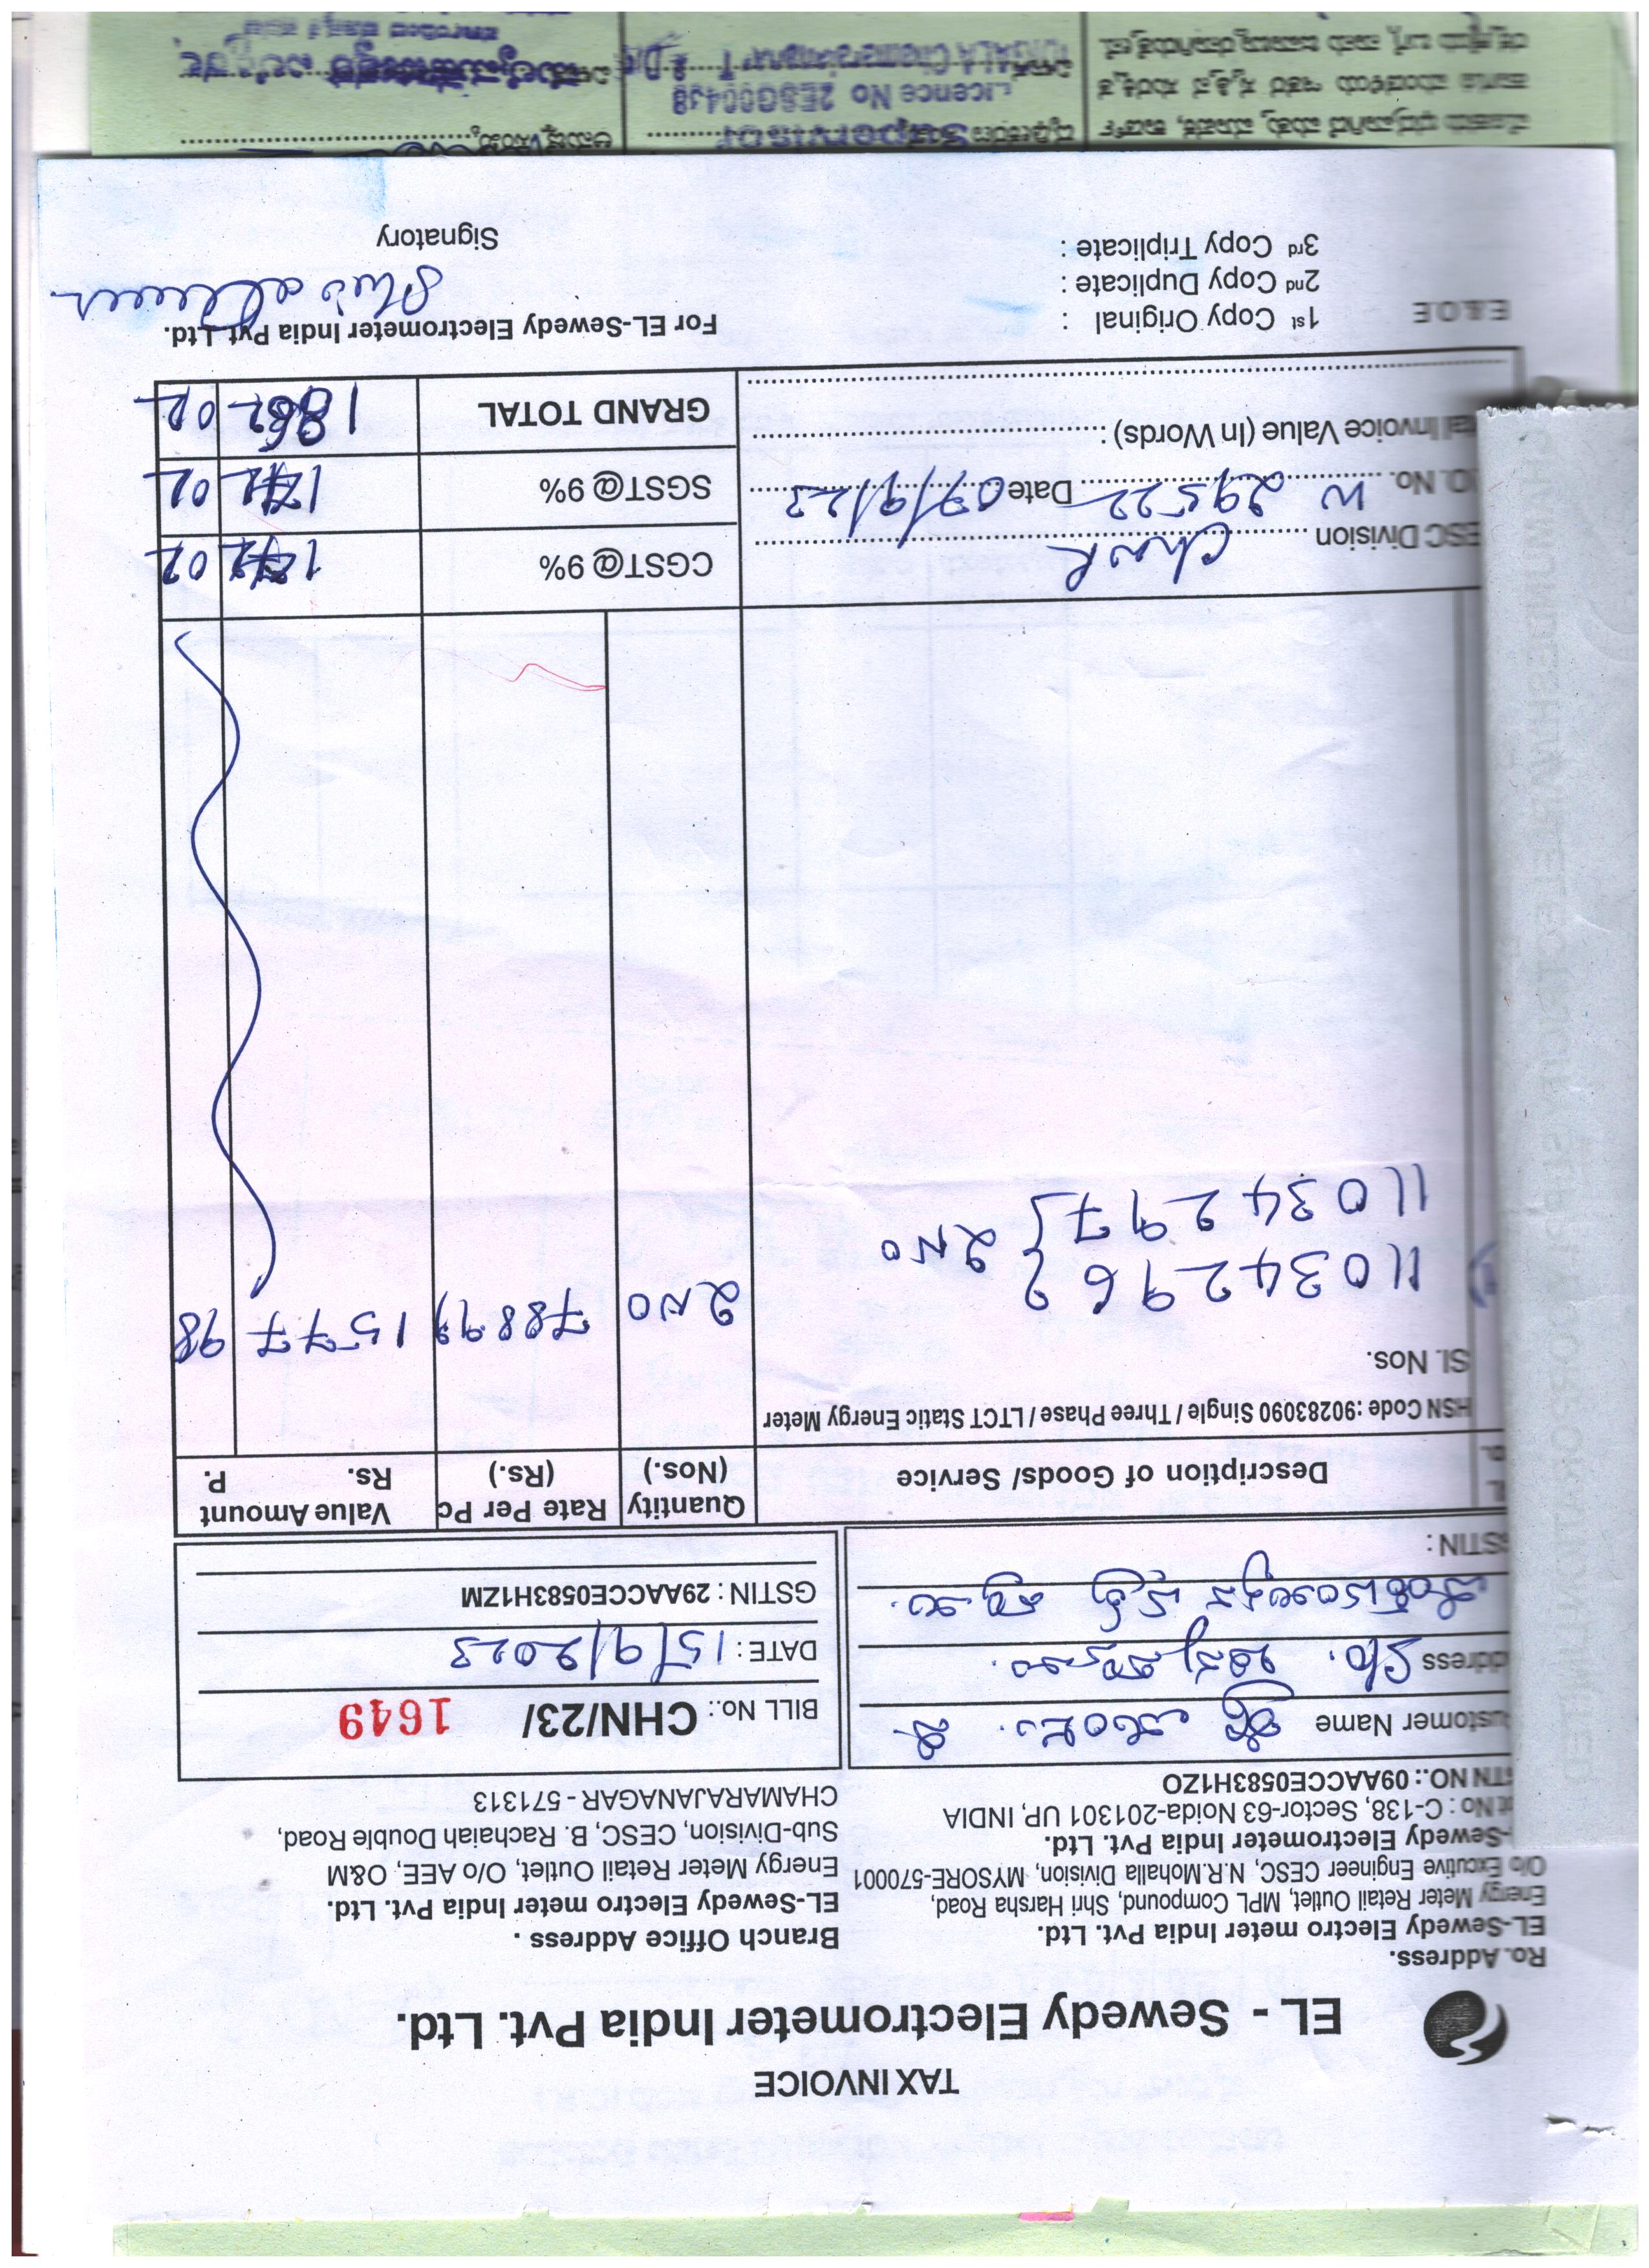 TAX INVOICE
EL - Sewedy Electrometer India Pvt. Ltd.
Ro. Address.
EL-Sewedy Electro meter India Pvt. Ltd.
Energy Meter Retail Outlet, MPL Compound, Shri Harsha Road,
O/o Excutive Engineer CESC, N.R.Mohalla Division, MYSORE-570001
-Sewedy Electrometer India Pvt. Ltd.
ot No : C-138, Sector-63 Noida-201301 UP, INDIA
STN NO.: 09AACCE0583H1ZO
Branch Office Address .
EL-Sewedy Electro meter India Pvt. Ltd.
Energy Meter Retail Outlet, O/o AEE, O&M
Sub-Division, CESC, B. Rachaiah Double Road,
CHAMARAJANAGAR - 571313
ustomer Name
ddress S/o.
STIN :
BILL No.: CHN/23/ 1649
DATE : 15/9/2023
GSTIN : 29AACCE0583H1ZM
Description of Goods/ Service Quantity (Nos.) Rate Per Pc (Rs.) Value Amount Rs. P.
HSN Code :90283090 Single / Three Phase / LTCT Static Energy Meter
Sl. Nos.
11034296 } 2 No 2 No 788 99 1577 98
11034297
ESC Division
O. No. 29522 Date 07/9/23
tal Invoice Value (In Words) :
CGST@ 9% 142 02
SGST@ 9% 142 02
GRAND TOTAL 1862 02
E & O E
1st Copy Original :
2nd Copy Duplicate :
3rd Copy Triplicate :
For EL-Sewedy Electrometer India Pvt. Ltd.
Signatory
Supervisor
Licence No 2ESG00438